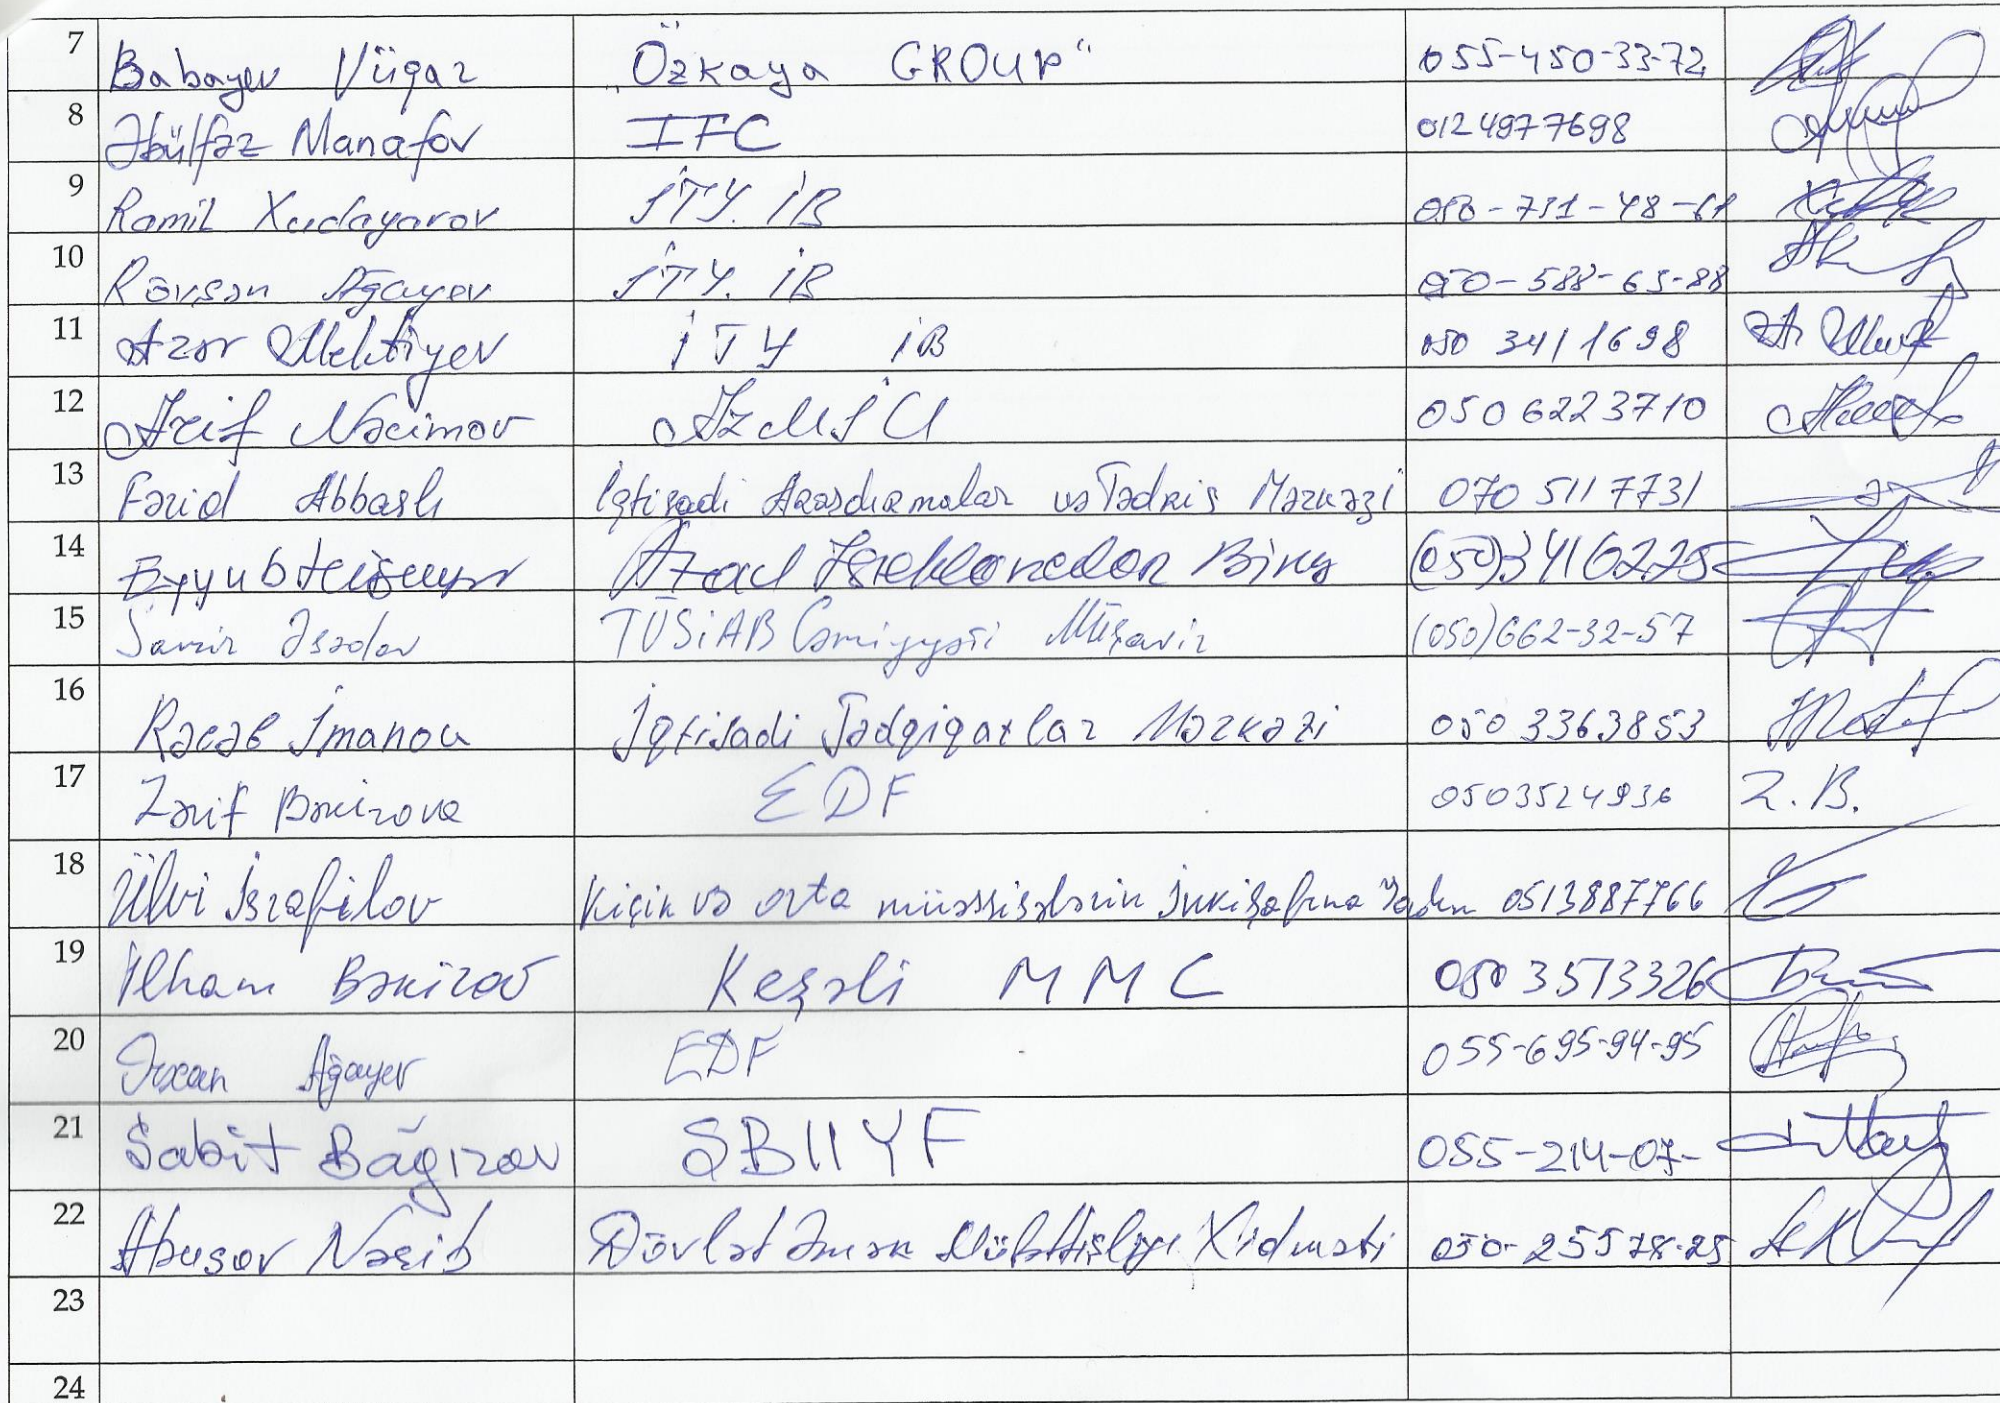 7 Babayev Vüqar „Özkaya GROUP“ 055-450-33-72
8 Əbülfəz Manafov IFC 0124977698
9 Ramil Xudayarov İTY. İB 050-731-48-61
10 Rövşən Ağayev İTY. İB 050-588-65-88
11 Azər Mehtiyev İTY İB 050 341 1698
12 Arif Nəcimov AzMİU 050 6223710
13 Fərid Abbaslı İqtisadi Araşdırmalar və Tədris Mərkəzi 070 511 7731
14 Eyyub Azad İstehlakçılar Bir (050)3416225
15 Samir Əsədov TÜSİAB Cəmiyyəti Müşavir (050)662-32-57
16 Rəcəb İmanov İqtisadi Tədqiqatlar Mərkəzi 050 3363853
17 Zərif Bəkirova EDF 0503524936 Z.B.
18 Ülvi İsrafilov Kiçik və orta müəssisələrin İnkişafına Yardım 0513887766
19 İlham Bəkirov Keşəli MMC 050 3573326
20 Orxan Ağayev EDF 055-695-94-95
21 Sabit Bağırov SBİİYF 055-214-07-
22 Nəsib Dövlət Əmək Müfəttişliyi Xidməti 050-255 78-25
23
24